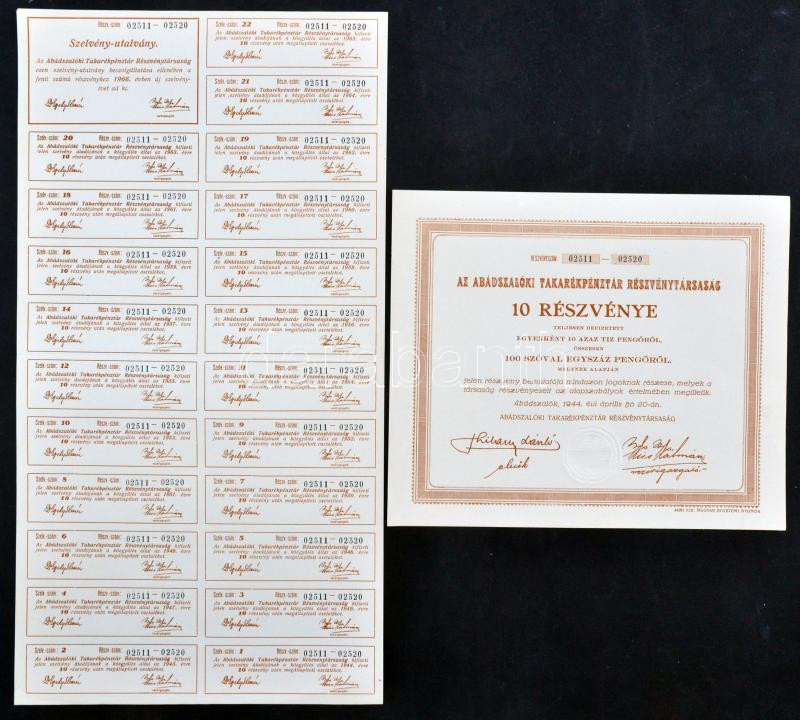 Szelvény-utalvány.
Részv.-szám: 02511 — 02520
Az Abádszalóki Takarékpénztár Részvénytársaság
ezen szelvény-utalvány beszolgáltatása ellenében a
fenti számú részvényekhez 1966. évben új szelvény-
ívet ad ki.
Szelv.-szám: 22 Részv.-szám: 02511 — 02520
Az Abádszalóki Takarékpénztár Részvénytársaság kifizeti
jelen szelvény átadójának a közgyűlés által az 1965. évre
10 részvény után megállapított osztalékot.
Szelv.-szám: 21 Részv.-szám: 02511 — 02520
Az Abádszalóki Takarékpénztár Részvénytársaság kifizeti
jelen szelvény átadójának a közgyűlés által az 1964. évre
10 részvény után megállapított osztalékot.
Szelv.-szám: 20 Részv.-szám: 02511 — 02520
Az Abádszalóki Takarékpénztár Részvénytársaság kifizeti
jelen szelvény átadójának a közgyűlés által az 1963. évre
10 részvény után megállapított osztalékot.
Szelv.-szám: 19 Részv.-szám: 02511 — 02520
Az Abádszalóki Takarékpénztár Részvénytársaság kifizeti
jelen szelvény átadójának a közgyűlés által az 1962. évre
10 részvény után megállapított osztalékot.
Szelv.-szám: 18 Részv.-szám: 02511 — 02520
Az Abádszalóki Takarékpénztár Részvénytársaság kifizeti
jelen szelvény átadójának a közgyűlés által az 1961. évre
10 részvény után megállapított osztalékot.
Szelv.-szám: 17 Részv.-szám: 02511 — 02520
Az Abádszalóki Takarékpénztár Részvénytársaság kifizeti
jelen szelvény átadójának a közgyűlés által az 1960. évre
10 részvény után megállapított osztalékot.
Szelv.-szám: 16 Részv.-szám: 02511 — 02520
Az Abádszalóki Takarékpénztár Részvénytársaság kifizeti
jelen szelvény átadójának a közgyűlés által az 1959. évre
10 részvény után megállapított osztalékot.
Szelv.-szám: 15 Részv.-szám: 02511 — 02520
Az Abádszalóki Takarékpénztár Részvénytársaság kifizeti
jelen szelvény átadójának a közgyűlés által az 1958. évre
10 részvény után megállapított osztalékot.
Szelv.-szám: 14 Részv.-szám: 02511 — 02520
Az Abádszalóki Takarékpénztár Részvénytársaság kifizeti
jelen szelvény átadójának a közgyűlés által az 1957. évre
10 részvény után megállapított osztalékot.
Szelv.-szám: 13 Részv.-szám: 02511 — 02520
Az Abádszalóki Takarékpénztár Részvénytársaság kifizeti
jelen szelvény átadójának a közgyűlés által az 1956. évre
10 részvény után megállapított osztalékot.
Szelv.-szám: 12 Részv.-szám: 02511 — 02520
Az Abádszalóki Takarékpénztár Részvénytársaság kifizeti
jelen szelvény átadójának a közgyűlés által az 1955. évre
10 részvény után megállapított osztalékot.
Szelv.-szám: 11 Részv.-szám: 02511 — 02520
Az Abádszalóki Takarékpénztár Részvénytársaság kifizeti
jelen szelvény átadójának a közgyűlés által az 1954. évre
10 részvény után megállapított osztalékot.
Szelv.-szám: 10 Részv.-szám: 02511 — 02520
Az Abádszalóki Takarékpénztár Részvénytársaság kifizeti
jelen szelvény átadójának a közgyűlés által az 1953. évre
10 részvény után megállapított osztalékot.
Szelv.-szám: 9 Részv.-szám: 02511 — 02520
Az Abádszalóki Takarékpénztár Részvénytársaság kifizeti
jelen szelvény átadójának a közgyűlés által az 1952. évre
10 részvény után megállapított osztalékot.
Szelv.-szám: 8 Részv.-szám: 02511 — 02520
Az Abádszalóki Takarékpénztár Részvénytársaság kifizeti
jelen szelvény átadójának a közgyűlés által az 1951. évre
10 részvény után megállapított osztalékot.
Szelv.-szám: 7 Részv.-szám: 02511 — 02520
Az Abádszalóki Takarékpénztár Részvénytársaság kifizeti
jelen szelvény átadójának a közgyűlés által az 1950. évre
10 részvény után megállapított osztalékot.
Szelv.-szám: 6 Részv.-szám: 02511 — 02520
Az Abádszalóki Takarékpénztár Részvénytársaság kifizeti
jelen szelvény átadójának a közgyűlés által az 1949. évre
10 részvény után megállapított osztalékot.
Szelv.-szám: 5 Részv.-szám: 02511 — 02520
Az Abádszalóki Takarékpénztár Részvénytársaság kifizeti
jelen szelvény átadójának a közgyűlés által az 1948. évre
10 részvény után megállapított osztalékot.
Szelv.-szám: 4 Részv.-szám: 02511 — 02520
Az Abádszalóki Takarékpénztár Részvénytársaság kifizeti
jelen szelvény átadójának a közgyűlés által az 1947. évre
10 részvény után megállapított osztalékot.
Szelv.-szám: 3 Részv.-szám: 02511 — 02520
Az Abádszalóki Takarékpénztár Részvénytársaság kifizeti
jelen szelvény átadójának a közgyűlés által az 1946. évre
10 részvény után megállapított osztalékot.
Szelv.-szám: 2 Részv.-szám: 02511 — 02520
Az Abádszalóki Takarékpénztár Részvénytársaság kifizeti
jelen szelvény átadójának a közgyűlés által az 1945. évre
10 részvény után megállapított osztalékot.
Szelv.-szám: 1 Részv.-szám: 02511 — 02520
Az Abádszalóki Takarékpénztár Részvénytársaság kifizeti
jelen szelvény átadójának a közgyűlés által az 1944. évre
10 részvény után megállapított osztalékot.
RÉSZVÉNYSZÁM: 02511 — 02520
AZ ABÁDSZALÓKI TAKARÉKPÉNZTÁR RÉSZVÉNYTÁRSASÁG
10 RÉSZVÉNYE
TELJESEN BEFIZETETT
EGYENKÉNT 10 AZAZ TIZ PENGŐRŐL,
ÖSSZESEN
100 SZÓVAL EGYSZÁZ PENGŐRŐL.
MELYNEK ALAPJÁN
jelen részvény bemutatója mindazon jogoknak részese, melyek a
társaság részvényeseit az alapszabályok értelmében megilletik.
Abádszalók, 1944. évi április hó 20-án.
ABÁDSZALÓKI TAKARÉKPÉNZTÁR RÉSZVÉNYTÁRSASÁG
elnök
vezérigazgató
44091 KIR. MAGYAR EGYETEMI NYOMDA
darabanth